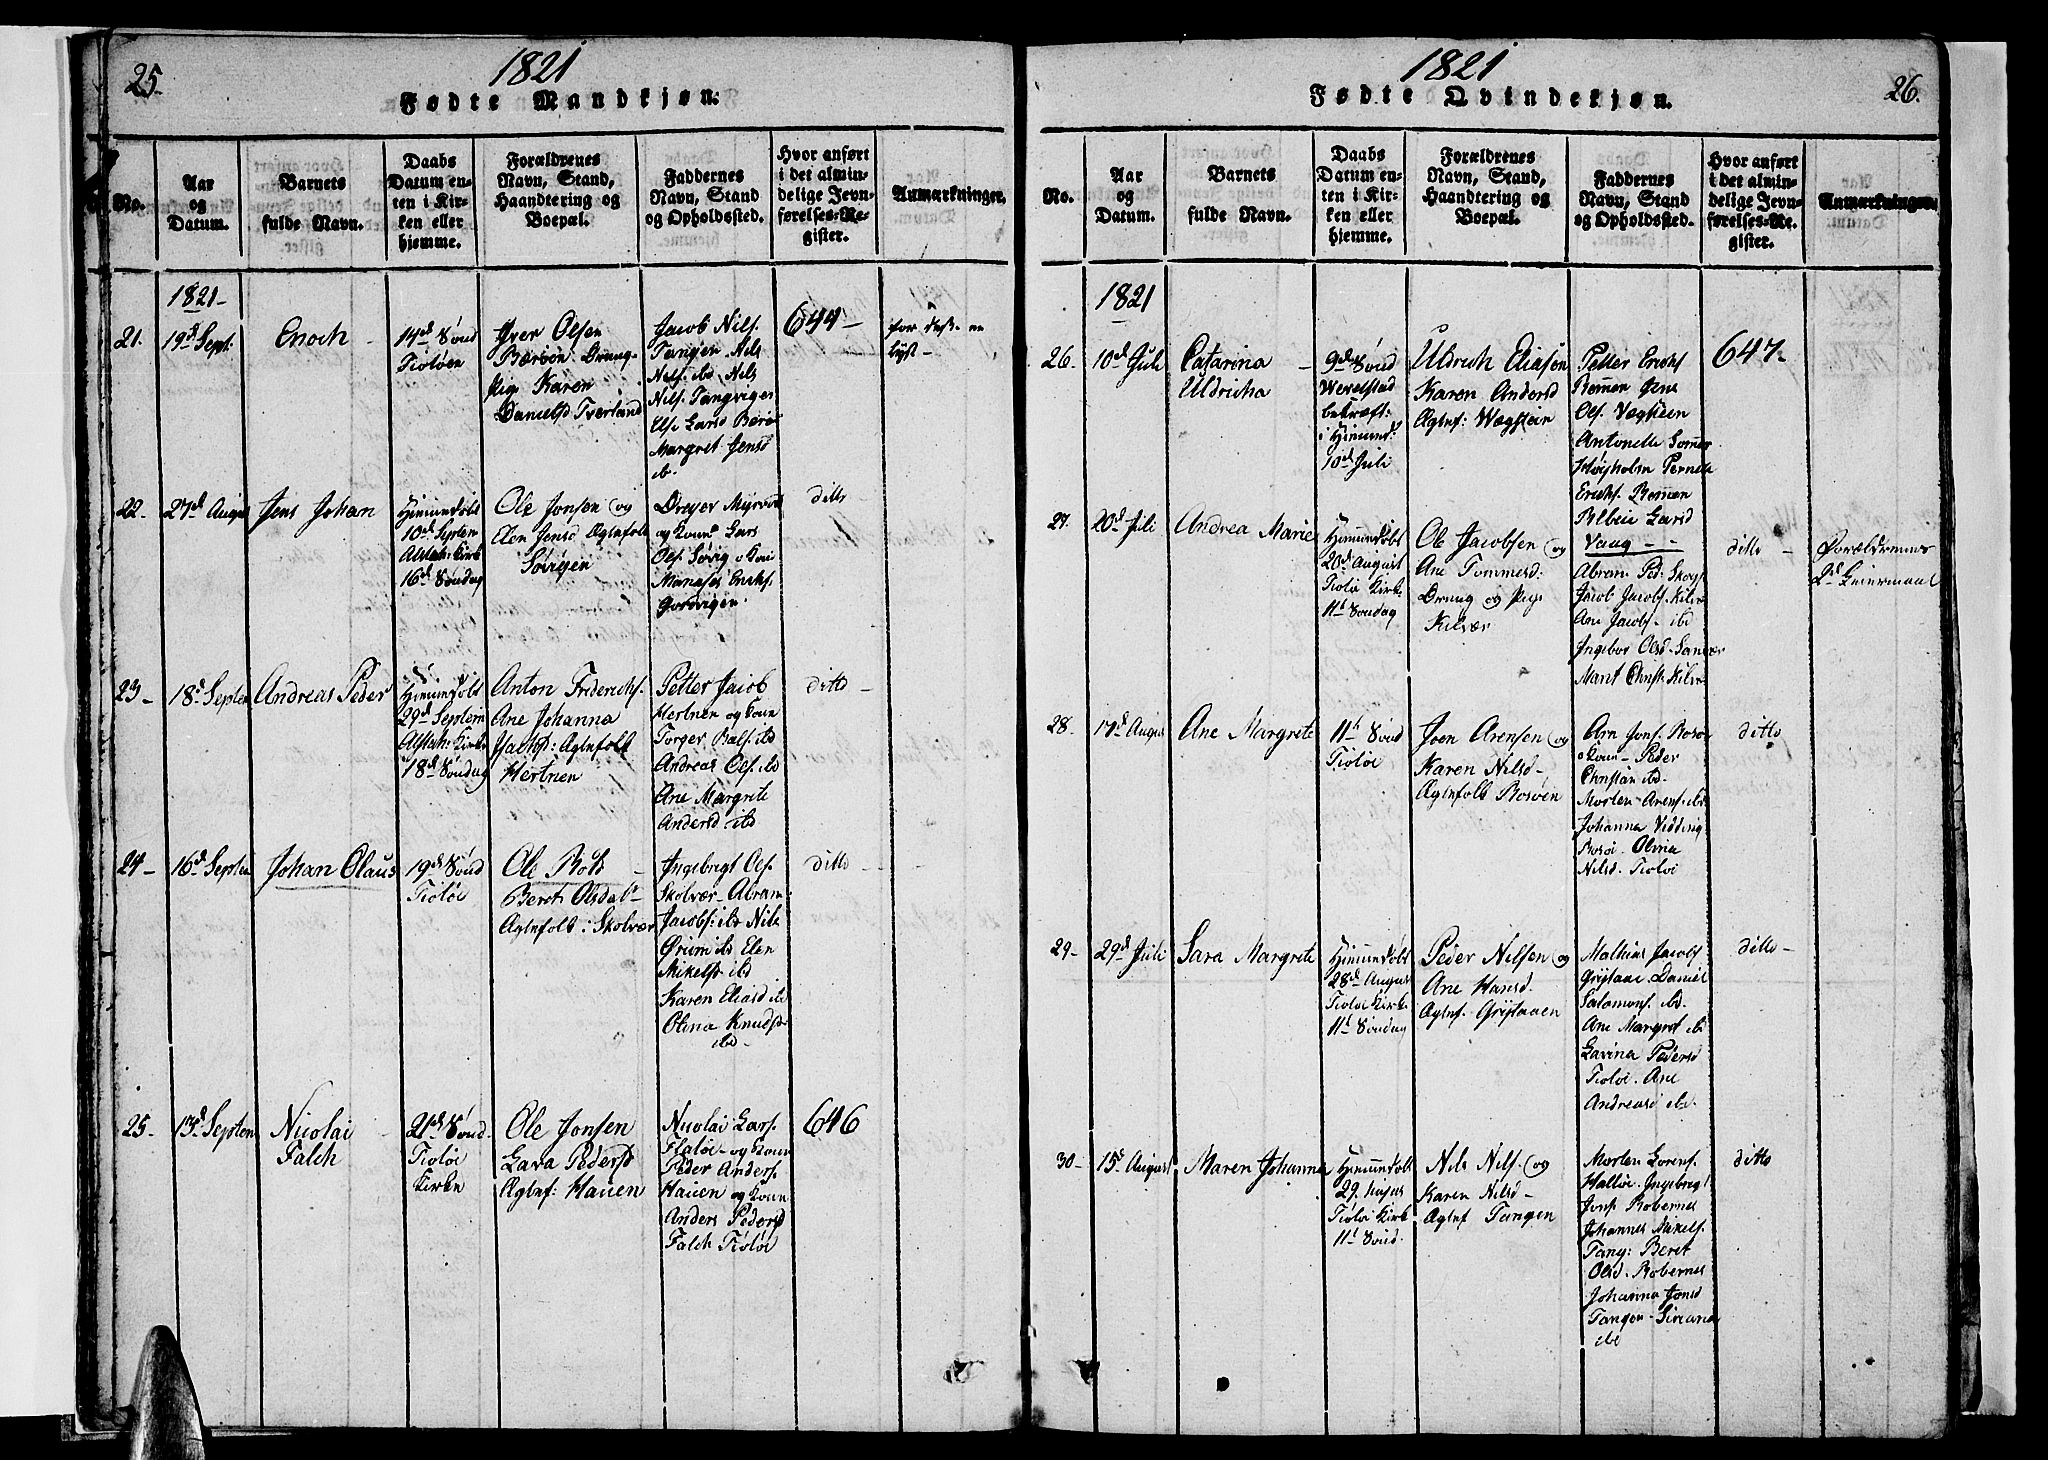 25.
1821
Fødte Mandkjøn.
No.
Aar og Datum.
Barnets fulde Navn.
Daabs Datum enten i Kirken eller hjemme.
Forældrenes Navn, Stand, Haandtering og Boepæl.
Faddernes Navn, Stand og Opholdssted.
Hvor anført i det almindelige Jevnførelses-Register.
Anmærkninger.
1821-
21.
19d Sept.
Enoch
14d Sønd
Tiøtøen
Iver Olsen
Bærøen Dreng
Pig Karen
Danielsd Tverland
Jacob Nils.
Tangen Nils
Nils. ibd Nils
Nils. Tangvigen
Else Larsd Bærø
Margret Jensd
ib.
644-
22-
27d August
Jens Johan
Hiemmedøbt
10d Septem
Alstah: Kirke
16d Søndag
Ole Jonsen og
Elen Jensd Ægtefolk
Søvigen
Dreyer Myrvold
og Kone Lars
Ols. Søvig o Kone
Mangses Erichs.
ditto
23-
18d Septem
Andreas Peder
Hiemmedøbt
29d Septem
Alstah: Kirke
18d Søndag
Anton Friderichs.
Ane Johanna
Isachsd: Ægtefolk
Hertnen
Petter Jacob
Hertnen og Kone
Torger Ibd
Andreas Ols. ibd
Ane Margrete
Andersd ibd
ditto -
24-
16d Septem
Johan Olaus
19d Sønd
Tiøtøe
Ole
Beret Olsdat-
Ægtefolk: Skolvær
Ingebrigt Ols.
Skolvær- Abram
Jacobs: ibd Nils
Grum ibd Elen
Mikelsd ibd
Karen Eliasd ibd
Olina Knudsd
ibd-
ditto -
25-
13d Septem
Nicolai
Falch
21d Sønd.
Tiøtøe
Kirken
Ole Jonsen
Lava Pedersd
Ægtef: Hauen
Nicolai Lars.
Fløtøe- og Kone
Peder Anders.
Hauen og Kone
Anders Pedersd
Falch Tiøtøe
646
26.
1821
Fødte Qvindekjøn.
No.
Aar og Datum.
Barnets fulde Navn.
Daabs Datum enten i Kirken eller hjemme.
Forældrenes Navn, Stand, Haandtering og Boepæl.
Faddernes Navn, Stand og Opholdssted.
Hvor anført i det almindelige Jevnførelses-Register.
Anmærkninger.
1821
26.
10d Juli
Catarina
Uldricha
9d Sønd
Wevelstad
bekræft:
i Hiemmed:
10d Juli
Uldrich Eliasen
Karen Andersd
Ægtef: Wægsten
Petter Erichs
Rømen
Ols. Vægsten
Antonette
Høyholm Pernele
Erichs. Rømen
Larsd
Vaag - -
647-
27.
20d Juli
Andrea Marie
Hiemmedøbt
20d August
Tiøtø Kirke
11t Søndag
Ole Jacobsen og
Ane Tommesd:
Dreng og Pige
Kilvær
Abram Ped:
Jacob Jacobs. Kilvær
Ane Jacobs- ibd
Ingebor Olsd Sanvær
Marit Christ: Kilvær
ditto -
Forældrenes
2d Leiermaal
28.
17d August
Ane Margrete
11t Sønd
Tiøtøe
Joen Arensen og
Karen Nilsd-
Ægtefolk Rosøen
Arn Jons. Rosøe
o Kone- Peder
Christian ibd-
Morten Arens. ibd
Johanna
Rosøe. Olina
Nilsd. Tiøtøe
ditto
29-
29d Juli
Sara Margrete
Hiemmedøbt
28d August
Tiøtøe Kirke
11t Søndag
Peder Nilsen og
Ane Hansd.
Ægtef- Grøtaaen
Mathias Jacobs
Grøtaae Daniel
Salomons. ibd.
Ane Margret ibd
Lavina Pedersd
Tiøtøe. Ane
Andreasd ibd.
ditto-
30-
15d August
Maren Johanna
Hiemmedøbt
29. August
Tiøtøe Kirke
11t Sønd.
Nils Nils. og
Karen Nilsd-
Ægtef Tangen
Morten Lorens.
Halløe. Ingebrigt
Jons. Robernes
Johannes Mikels.
Tang: Beret
Olsd. Robernes
Johanna Jonsd
Tangen-
ibd
ditto